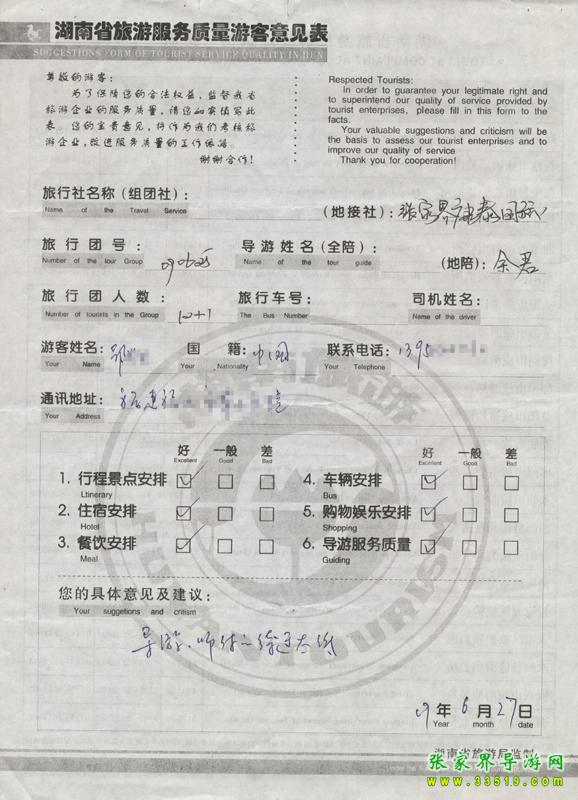 湖南省旅游服务质量游客意见表
SUGGESTIONS FORM OF TOURIST SERVICE QUALITY IN HUN
尊敬的游客:
为了保障您的合法权益,监督我省
旅游企业的服务质量,请您如实填写此
表。您的宝贵意见,将作为我们考核旅
游企业,改进服务质量的工作依据。
谢谢合作!
Respected Tourists:
In order to guarantee your legitimate right and
to superintend our quality of service provided by
tourist enterprises, please fill in this form to the
facts.
Your valuable suggestions and criticism will
be the basis to assess our tourist enterprises and to
improve our quality of service
Thank you for cooperation!
旅行社名称(组团社):
Name of the Travel Service
(地接社): 张家界康泰国旅
旅行团号: 090625
Number of the tour Group
导游姓名(全陪):
Name of the tour guide
(地陪): 余君
旅行团人数: 12+1
Number of tourists in the Group
旅行车号:
The Bus Number
司机姓名:
Name of the driver
游客姓名:
Your Name
国籍: 中国
Your Nationality
联系电话: 139
Your Telephone
通讯地址: 福建
Your Address
好 一般 差 好 一般 差
Excellent Good Bad Excellent Good Bad
1. 行程景点安排 4. 车辆安排
Ltinerary Bus
2. 住宿安排 5. 购物娱乐安排
Hotel Shopping
3. 餐饮安排 6. 导游服务质量
Meal Guiding
您的具体意见及建议:
Your suggetions and critism
导游
09年6月27日
Year month date
湖南省旅游局监制
Under the
张家界导游网
www.33519.com